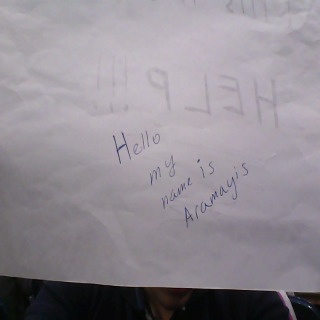 HELP !!!
Hello
my
name is
Aramayis